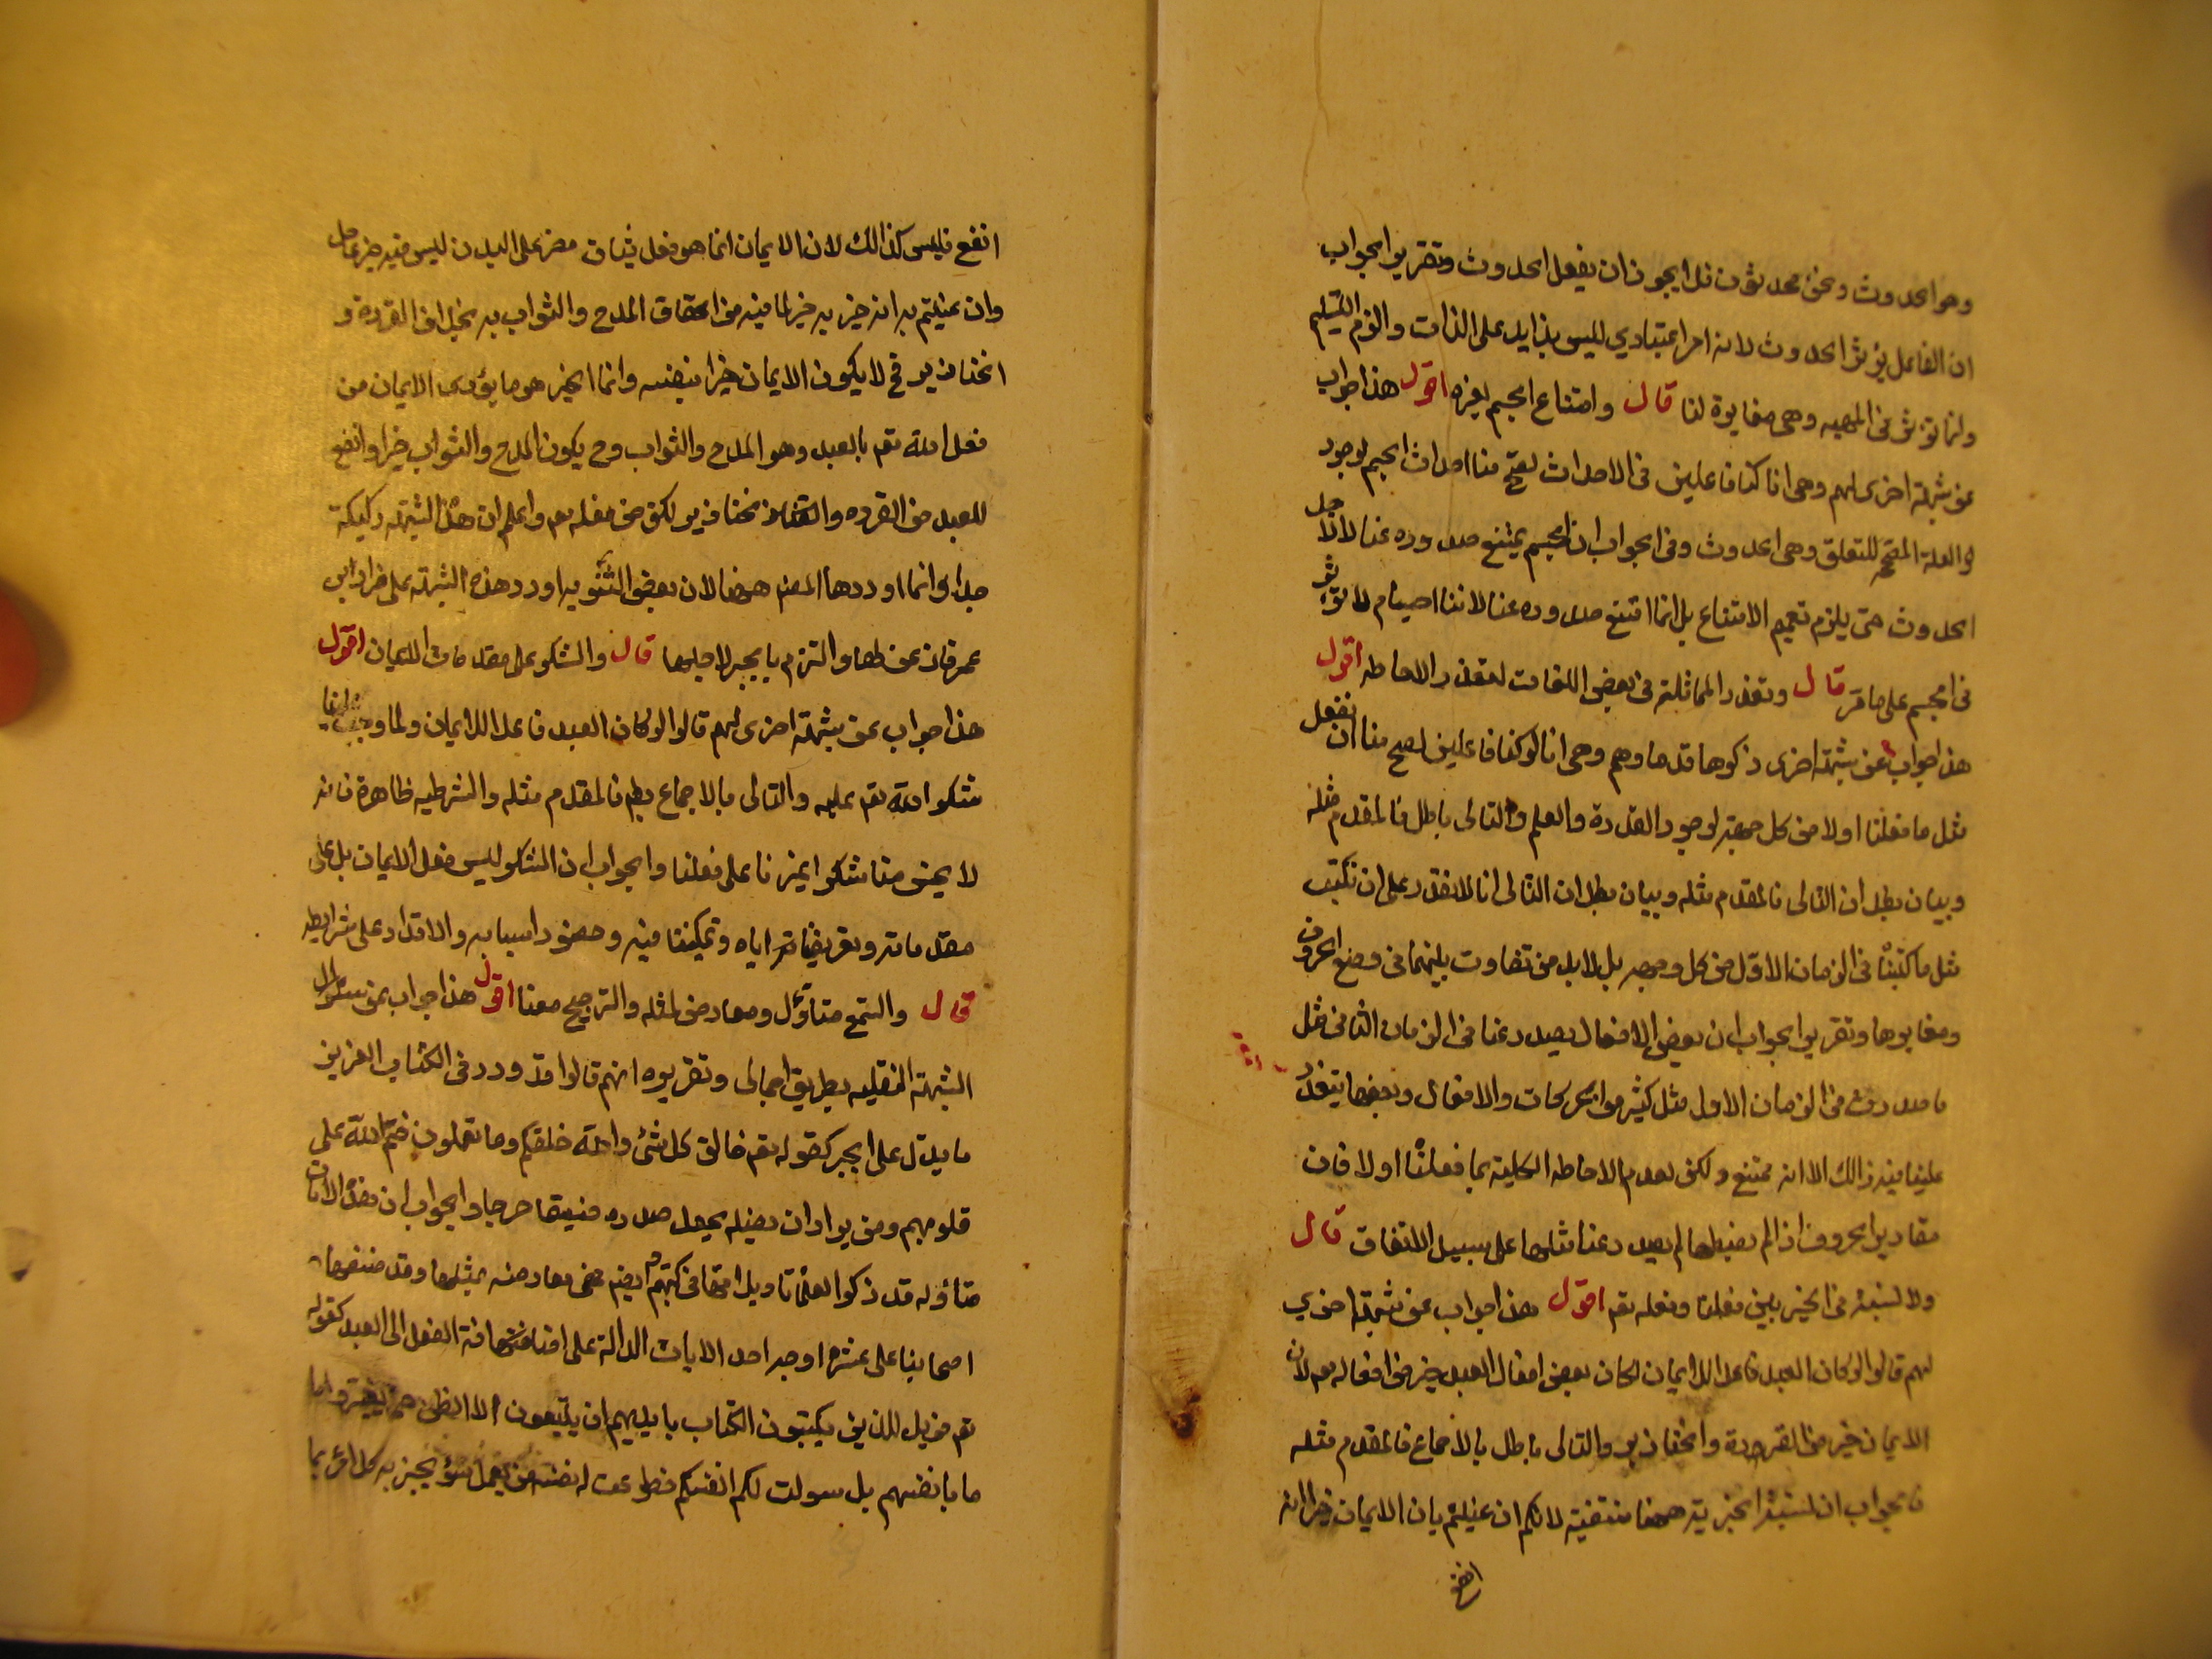 وهو الحدوث ونحن محدثون فلا يجوز ان يفعل الحدوث وتقرير الجواب
ان الفاعل يؤثر الحدوث لانه امر اعتباري ليس بزايد على الذات والزم التسلسل
وانما تؤثر في المهيه وهي مغايرة لنا قال وامتناع الجسم لغيره اقول هذا جواب
عن شبهة اخرى لهم وهي انا لو كنا فاعلين في الاحداث لصح منا احداث الجسم لوجود
العلة المصححة للتعلق وهي الحدوث وفي الجواب ان الجسم يمتنع صدوره عنا لا لاجل
الحدوث حتى يلزم تعميم الامتناع بل انما امتنع صدوره عنا لاننا اجسام لا تؤثر
في الجسم على ما مر قال وتعذر المماثلة في بعض الافعال لتعذر الاحاطه اقول
هذا جواب عن شبهة اخرى ذكرها قدماوهم وهي انا لو كنا فاعلين لصح منا ان نفعل
مثل ما فعلنا اولا من كل جهة لوجود القدرة والعلم والتالى باطل فالمقدم مثله
وبيان بطلان التالى فالمقدم مثله وبيان بطلان التالى انا لا نقدر على ان نكتب
مثل ما كتبنا في الزمان الاول من كل وجه بل لا بد من تفاوت بينهما في وضع الحروف
ومقاديرها وتقرير الجواب ان بعض الافعال يصدر عنا في الزمان الثاني مثل
ما صدرت في الزمان الاول مثل كثير من الحركات والافعال وبعضها يتعذر
علينا فيه ذالك لا لانه ممتنع ولكن لعدم الاحاطه الكلية بما فعلنا اولا فان
مقادير الحروف اذا لم نضبطها لم يصدر عنا مثلها على سبيل الاتفاق قال
ولا نسبة في الخير بين فعلنا وفعله تع اقول هذا جواب عن شبهة اخرى
لهم قالوا لو كان العبد فاعلا للايمان لكان بعض افعال العبد خير من افعاله تع لان
الايمان خير من القردة والخنازير والتالى باطل بالاجماع فالمقدم مثله
والجواب ان نسبة الخيرية ههنا منتفية لانكم ان عنيتم بان الايمان خير انه
انفع
انفع فليس كذالك لان الايمان انما هو فعل شاق مضر على البدن ليس فيه خير عاجل
وان عنيتم به انه خير به خير لما فيه من استحقاق المدح والثواب به بخلاف القردة و
الخنازير فح لا يكون الايمان خيرا بنفسه وانما الخير هو ما يؤدى الايمان من
فعل الله تع بالعبد وهو المدح والثواب وح يكون المدح والثواب خيرا وانفع
للعبد من القرده والخنازير لكن من فعله تع واعلم ان هذه الشبهة ركيكة
جدا وانما اوردها المصنف ههنا لان بعض الثنويه اورد هذه الشبهة على ضرار ابن
عمر فاذعن لها والتزم بالجبر لاجلها قال والشكر على مقدمات الايمان اقول
هذا جواب عن شبهة اخرى لهم قالوا لو كان العبد فاعلا للايمان ولما وجب علينا
شكر الله تع عليه والتالى بالاجماع بط فالمقدم مثله والشرطيه ظاهرة فانه
لا يحسن منا شكر غيرنا على فعلنا والجواب ان الشكر ليس فعل الايمان بل على
مقدماته وتعريفنا اياه وتمكيننا منه وحضور اسبابه والاقدار على شرايطه
قال والسمع متاول ومعارض بمثله والترجيح معنا اقول هذا جواب عن سؤال
الشبهة النقليه بطريق اجمالى وتقريره انهم قالوا قد ورد في الكتاب العزيز
ما يدل على الجبر كقوله تع خالق كل شئ والله خلقكم وما تعملون ختم الله على
قلوبهم ومن يرد ان يضله يجعل صدره ضيقا حرجا والجواب ان هذه الايات
متأوله قد ذكر العلما تاويلاتها في كتبهم ايضم فهي معارضه بمثلها وقد صنفها
اصحابنا على عشرة اوجه احد الايات الدالة على اضافة الفعل الى العبد كقوله
تع فويل للذين يكتبون الكتاب بايديهم ان يتبعون الا الظن حتى يغيروا
ما بانفسهم بل سولت لكم انفسكم فطوعت له نفسه من يعمل سوء يجز به كل امرئ بما